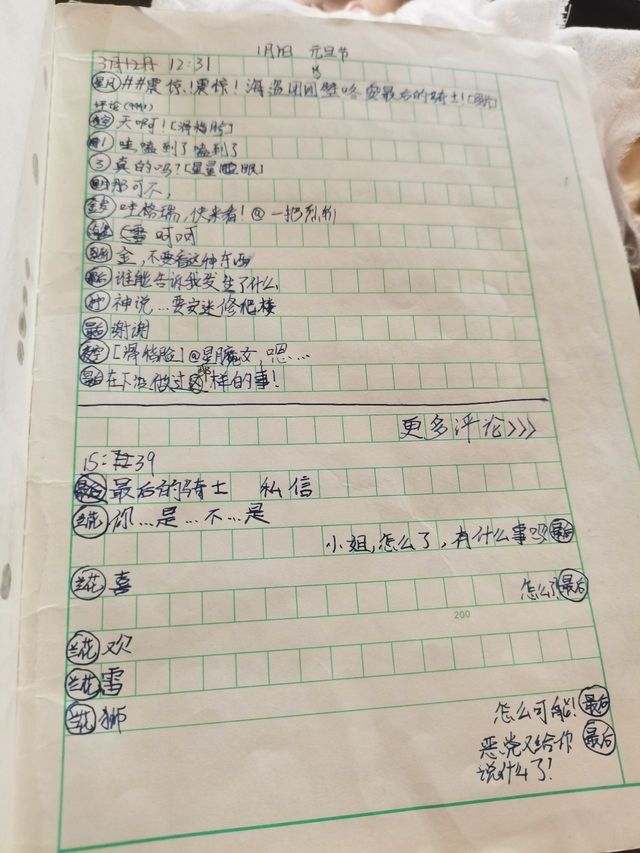 1月1日 元旦节
3月12月 12:31
星月 ##震惊!震惊!海盗团团 最后的骑士!
评论
天啊!!【滑稽脸】
哇,嗑到了嗑到了
③ 真的吗?【星星眼】
那可不,
哇格瑞,快来看!@一把烈
呵呵
金,不要看这种东西
最后 谁能告诉我发生了什么
神 神说…要安迷修爬楼
最后 谢谢
[滑稽脸]@星月魔女 嗯…
最后 在下没做过那样的事!
更多评论>>>
15:39
最后 最后的骑士 私信
兰花 你…是…不…是
小姐,怎么了,有什么事吗 最后
兰花 喜
怎么了 最后
200
兰花 欢
兰花 雷
兰花 狮
怎么可能! 最后
恶党又给你 最后
说什么了!